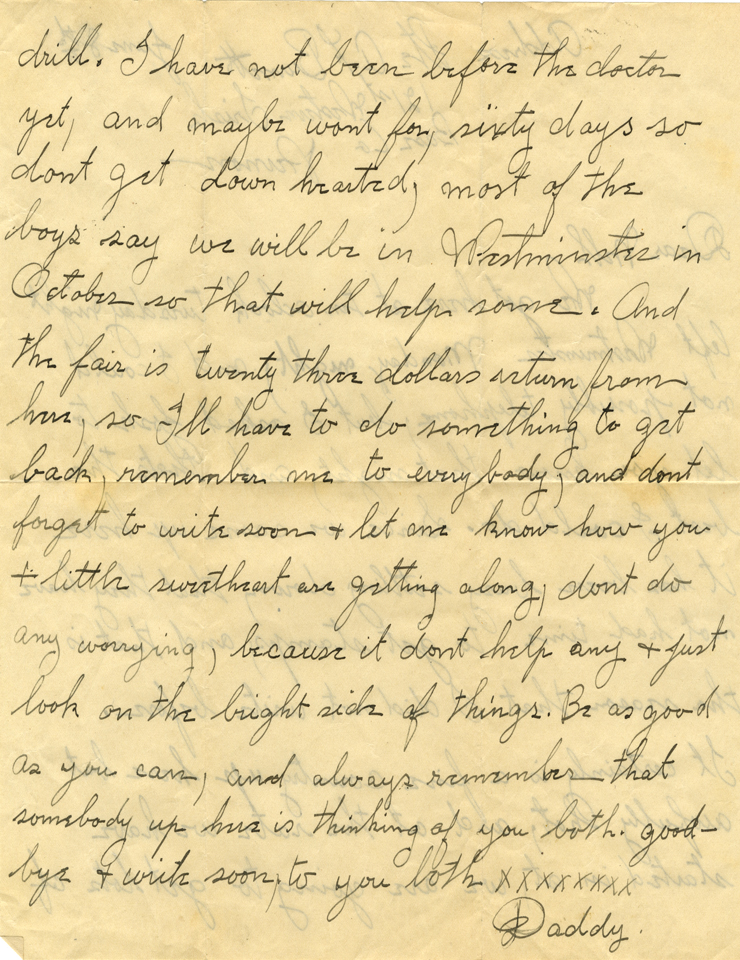 drill. I have not been before the doctor
yet, and maybe wont for, sixty days so
dont get down hearted, most of the
boys say we will be in Westminster in
October so that will help some. And
the fair is twenty three dollars return from
here, so I'll have to do something to get
back, remember me to everybody, and dont
forget to write soon + let me know how you
+ little sweetheart are getting along, dont do
any worrying, because it dont help any + just
look on the bright side of things. Be as good
as you can, and always remember that
somebody up here is thinking of you both. good-
bye + write soon, to you both xxxxxxxx
Daddy.